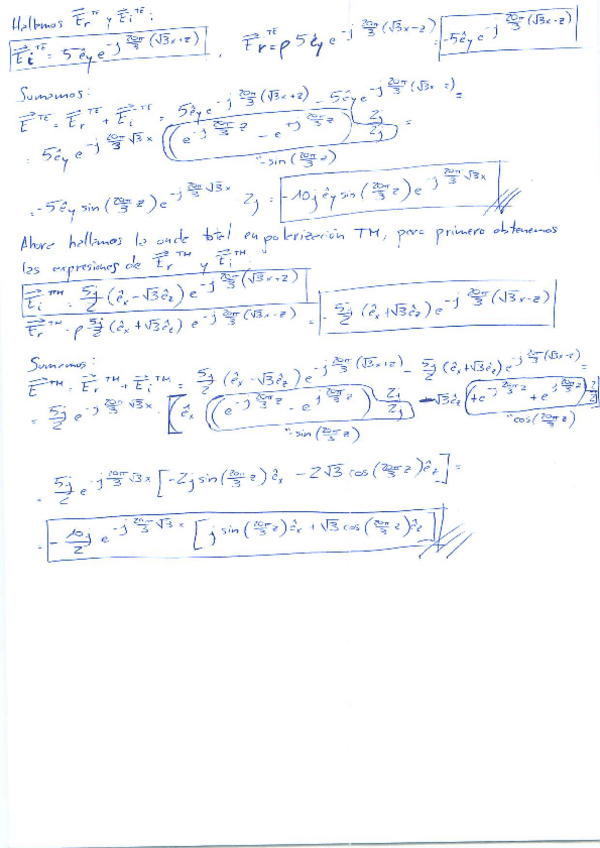 Hallamos E⃗r^TE y E⃗i^TE:
E⃗i^TE = 5ê_y e^{-j 20π/3 (√3x+z)} , E⃗r^TE = ρ 5ê_y e^{-j 20π/3 (√3x-z)} = -5ê_y e^{-j 20π/3 (√3x-z)}
Sumamos:
E⃗^TE = E⃗r^TE + E⃗i^TE = 5ê_y e^{-j 20π/3 (√3x+z)} - 5ê_y e^{-j 20π/3 (√3x-z)} =
= 5ê_y e^{-j 20π/3 √3x} (e^{-j 20π/3 z} - e^{+j 20π/3 z}) 2j/2j =
"-sin(20π/3 z)
= -5ê_y sin(20π/3 z) e^{-j 20π/3 √3x} 2j = -10j ê_y sin(20π/3 z) e^{-j 20π/3 √3x}
Ahora hallamos la onda total en polarización TM, pero primero obtenemos
las expresiones de E⃗r^TM y E⃗i^TM:
E⃗i^TM = 5j/2 (ê_x - √3ê_z) e^{-j 20π/3 (√3x+z)}
E⃗r^TM = ρ 5j/2 (ê_x + √3ê_z) e^{-j 20π/3 (√3x-z)} = -5j/2 (ê_x + √3ê_z) e^{-j 20π/3 (√3x-z)}
Sumamos:
E⃗^TM = E⃗r^TM + E⃗i^TM = 5j/2 (ê_x - √3ê_z) e^{-j 20π/3 (√3x+z)} - 5j/2 (ê_x + √3ê_z) e^{-j 20π/3 (√3x-z)} =
= 5j/2 e^{-j 20π/3 √3x} · [ê_x (e^{-j 20π/3 z} - e^{j 20π/3 z}) 2j/2j - √3ê_z (+e^{-j 20π/3 z} + e^{j 20π/3 z}) 2/2]
"-sin(20π/3 z) "cos(20π/3 z)
= 5j/2 e^{-j 20π/3 √3x} [-2j sin(20π/3 z) ê_x - 2√3 cos(20π/3 z) ê_z] =
= -10j/2 e^{-j 20π/3 √3x} [j sin(20π/3 z) ê_x + √3 cos(20π/3 z) ê_z]